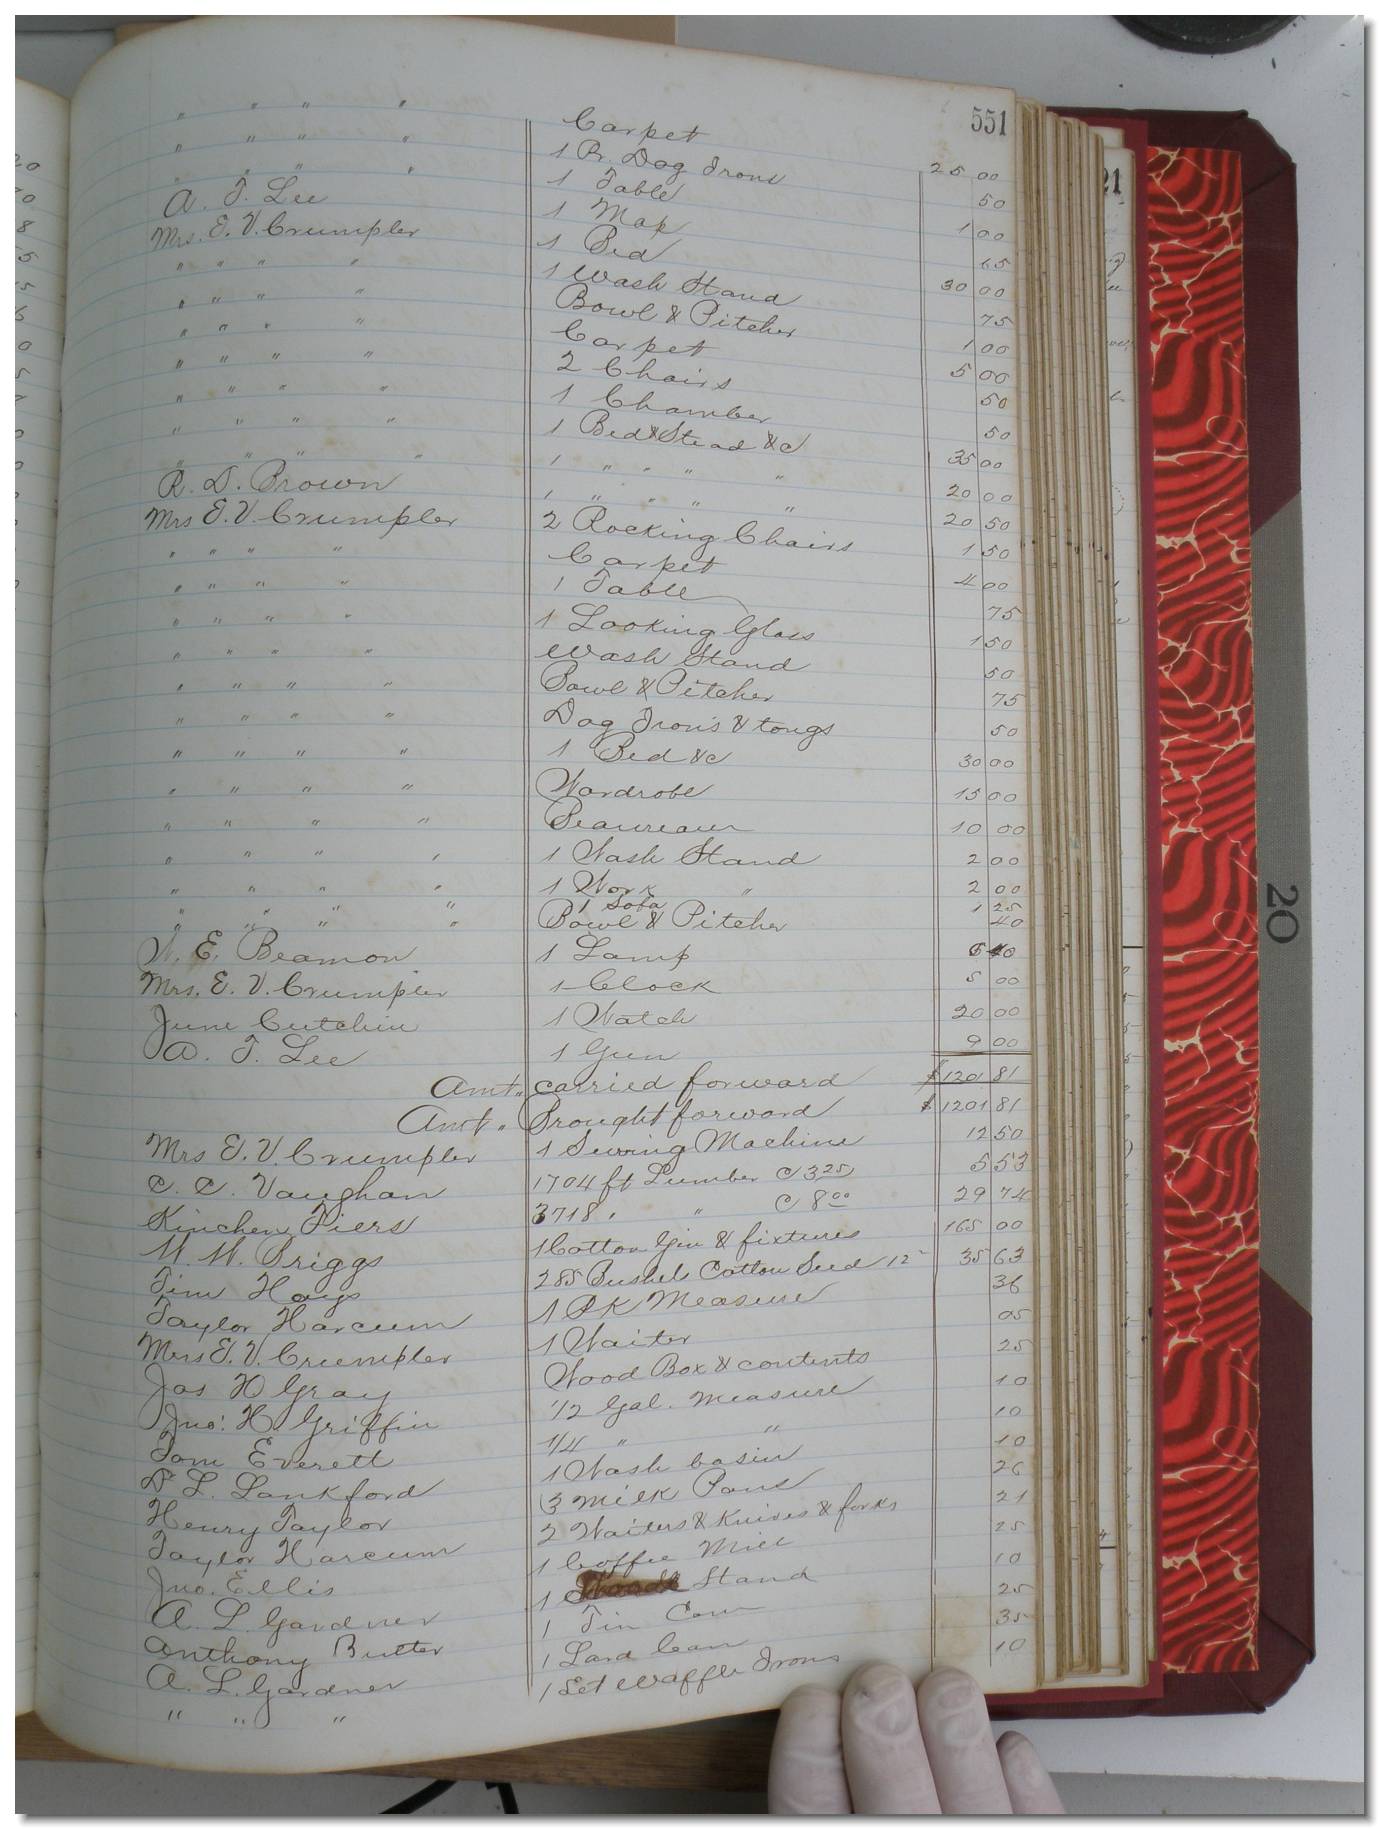 551
" " " " Carpet 25 00
" " " " 1 Pr. Dog Irons 50
" " " " 1 Table 1 00
A. T. Lee 1 Map 65
Mrs. E. V. Crumpler 1 Bed 30 00
" " " " 1 Wash Stand 75
" " " " Bowl & Pitcher 1 00
" " " " Carpet 5 00
" " " " 2 Chairs 50
" " " " 1 Chamber 50
" " " " 1 Bed & Stead &c 35 00
" " " " 1 " " " " 20 00
R. D. Brown 1 " " " " 20 50
Mrs E. V. Crumpler 2 Rocking Chairs 1 50
" " " " Carpet 4 00
" " " " 1 Table 75
" " " " 1 Looking Glass 1 50
" " " " Wash Stand 50
" " " " Bowl & Pitcher 75
" " " " Dog Irons & tongs 50
" " " " 1 Bed &c 30 00
" " " " Wardrobe 15 00
" " " " Beaureaur 10 00
" " " " 1 Wash Stand 2 00
" " " " 1 Work " 2 00
" " " " 1 Sofa 1 25
" " " " Bowl & Pitcher 40
W. E. Beamon 1 Lamp
Mrs. E. V. Crumpler 1 Clock 5 00
June Cutchin 1 Watch 20 00
A. T. Lee 1 Gun 9 00
Amt. carried forward $1201 81
Amt. Brought forward $1201 81
Mrs E. V. Crumpler 1 Sewing Machine 12 50
C. C. Vaughan 1704 ft Lumber @ 3 25 5 53
Kinchen Piers 3718 " " @ 8 00 29 74
W. W. Briggs 1 Cotton Gin & fixtures 165 00
Tim Hays 285 Bushels Cotton Seed 12 35 63
Taylor Harcum 1 PK Measure 36
Mrs E. V. Crumpler 1 Waiter 05
Jas H Gray Wood Box & contents 25
Jno. H. Griffin 1/2 Gal. Measure 10
Tom Everett 1/4 " " 10
D. L. Lankford 1 Wash basin 10
Henry Taylor 3 Milk Pans 26
Taylor Harcum 2 Waiters & Knives & forks 21
Jno. Ellis 1 Coffee Mill 25
A. L. Gardner 1 Stand 10
Anthony Butler 1 Tin Can 25
A. L. Gardner 1 Lard Can 35
" " " 1 Set Waffle Irons 10
21
20